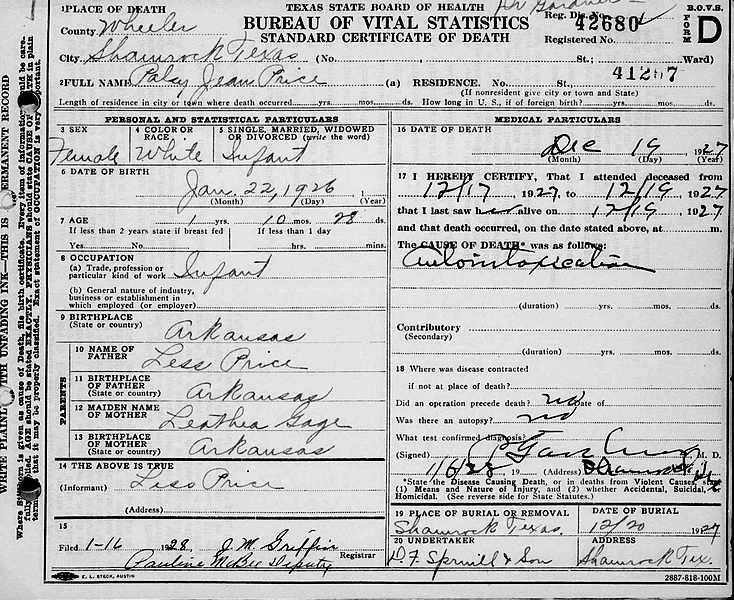 TEXAS STATE BOARD OF HEALTH
BUREAU OF VITAL STATISTICS
STANDARD CERTIFICATE OF DEATH
Dr Gardner
Reg. Dis. No. 42680
Registered No.
B.O.V.S.
FORM D
1 PLACE OF DEATH
County Wheeler
City Shamrock Texas (No. St.; Ward)
41267
2 FULL NAME Patsy Jean Price (a) RESIDENCE. No. St.,
(If nonresident give city or town and State)
Length of residence in city or town where death occurred yrs. mos. ds. How long in U. S., if of foreign birth? yrs. mos. ds.
PERSONAL AND STATISTICAL PARTICULARS
3 SEX
Female
4 COLOR OR RACE
White
5 SINGLE, MARRIED, WIDOWED OR DIVORCED (write the word)
Infant
6 DATE OF BIRTH
Jan. 22, 1926
(Month) (Day) (Year)
7 AGE 1 yrs. 10 mos. 28 ds.
If less than 2 years state if breast fed If less than 1 day
Yes No hrs. mins.
8 OCCUPATION
(a) Trade, profession or
particular kind of work Infant
(b) General nature of industry,
business or establishment in
which employed (or employer)
9 BIRTHPLACE
(State or country) Arkansas
PARENTS
10 NAME OF
FATHER Less Price
11 BIRTHPLACE
OF FATHER
(State or country) Arkansas
12 MAIDEN NAME
OF MOTHER Leathea Gage
13 BIRTHPLACE
OF MOTHER
(State or country) Arkansas
14 THE ABOVE IS TRUE
(Informant) Less Price
(Address)
15
Filed 1-16 1928. J.M. Griffin
Registrar
Pauline McBee Deputy
E. L. STECK, AUSTIN
MEDICAL PARTICULARS
16 DATE OF DEATH
Dec 19 1927
(Month) (Day) (Year)
17 I HEREBY CERTIFY, That I attended deceased from
12/17, 1927, to 12/19, 1927
that I last saw alive on 12/19, 1927
and that death occurred, on the date stated above, at m.
The CAUSE OF DEATH* was as follows:
Autointoxication
(duration) yrs. mos. ds.
Contributory
(Secondary)
(duration) yrs. mos. ds.
18 Where was disease contracted
if not at place of death?
Did an operation precede death? no Date of
Was there an autopsy? no
What test confirmed diagnosis?
(Signed) M. D.
1/6/28, 19 (Address) Shamrock
*State the Disease Causing Death, or in deaths from Violent Causes, state
(1) Means and Nature of Injury, and (2) whether Accidental, Suicidal,
Homicidal. (See reverse side for State Statutes.)
19 PLACE OF BURIAL OR REMOVAL
Shamrock Texas.
DATE OF BURIAL
12/20 1927
20 UNDERTAKER
D.F. Spruill & Son
ADDRESS
Shamrock Tex.
2887-818-100M